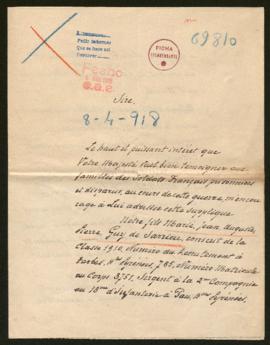 69810
FICHA
Sire,
8-4-918
Le haut et puissant intérêt que
Votre Majesté veut bien témoigner aux
familles des Soldats Français prisonniers
et disparus, au cours de cette guerre, m'encou
rage à Lui adresser cette supplique
Notre fils Marie, Jean, Auguste,
Pierre, Guy de Sarrieu, conscrit de la
Classe 1910, Numéro du Recrutement à
Tarbes, Htes Pyrénées, 781, Numéro Matricule
au Corps 3751, Sergent à la 2me Compagnie
du 18me d'Infanterie à Pau, Bses Pyrénées.